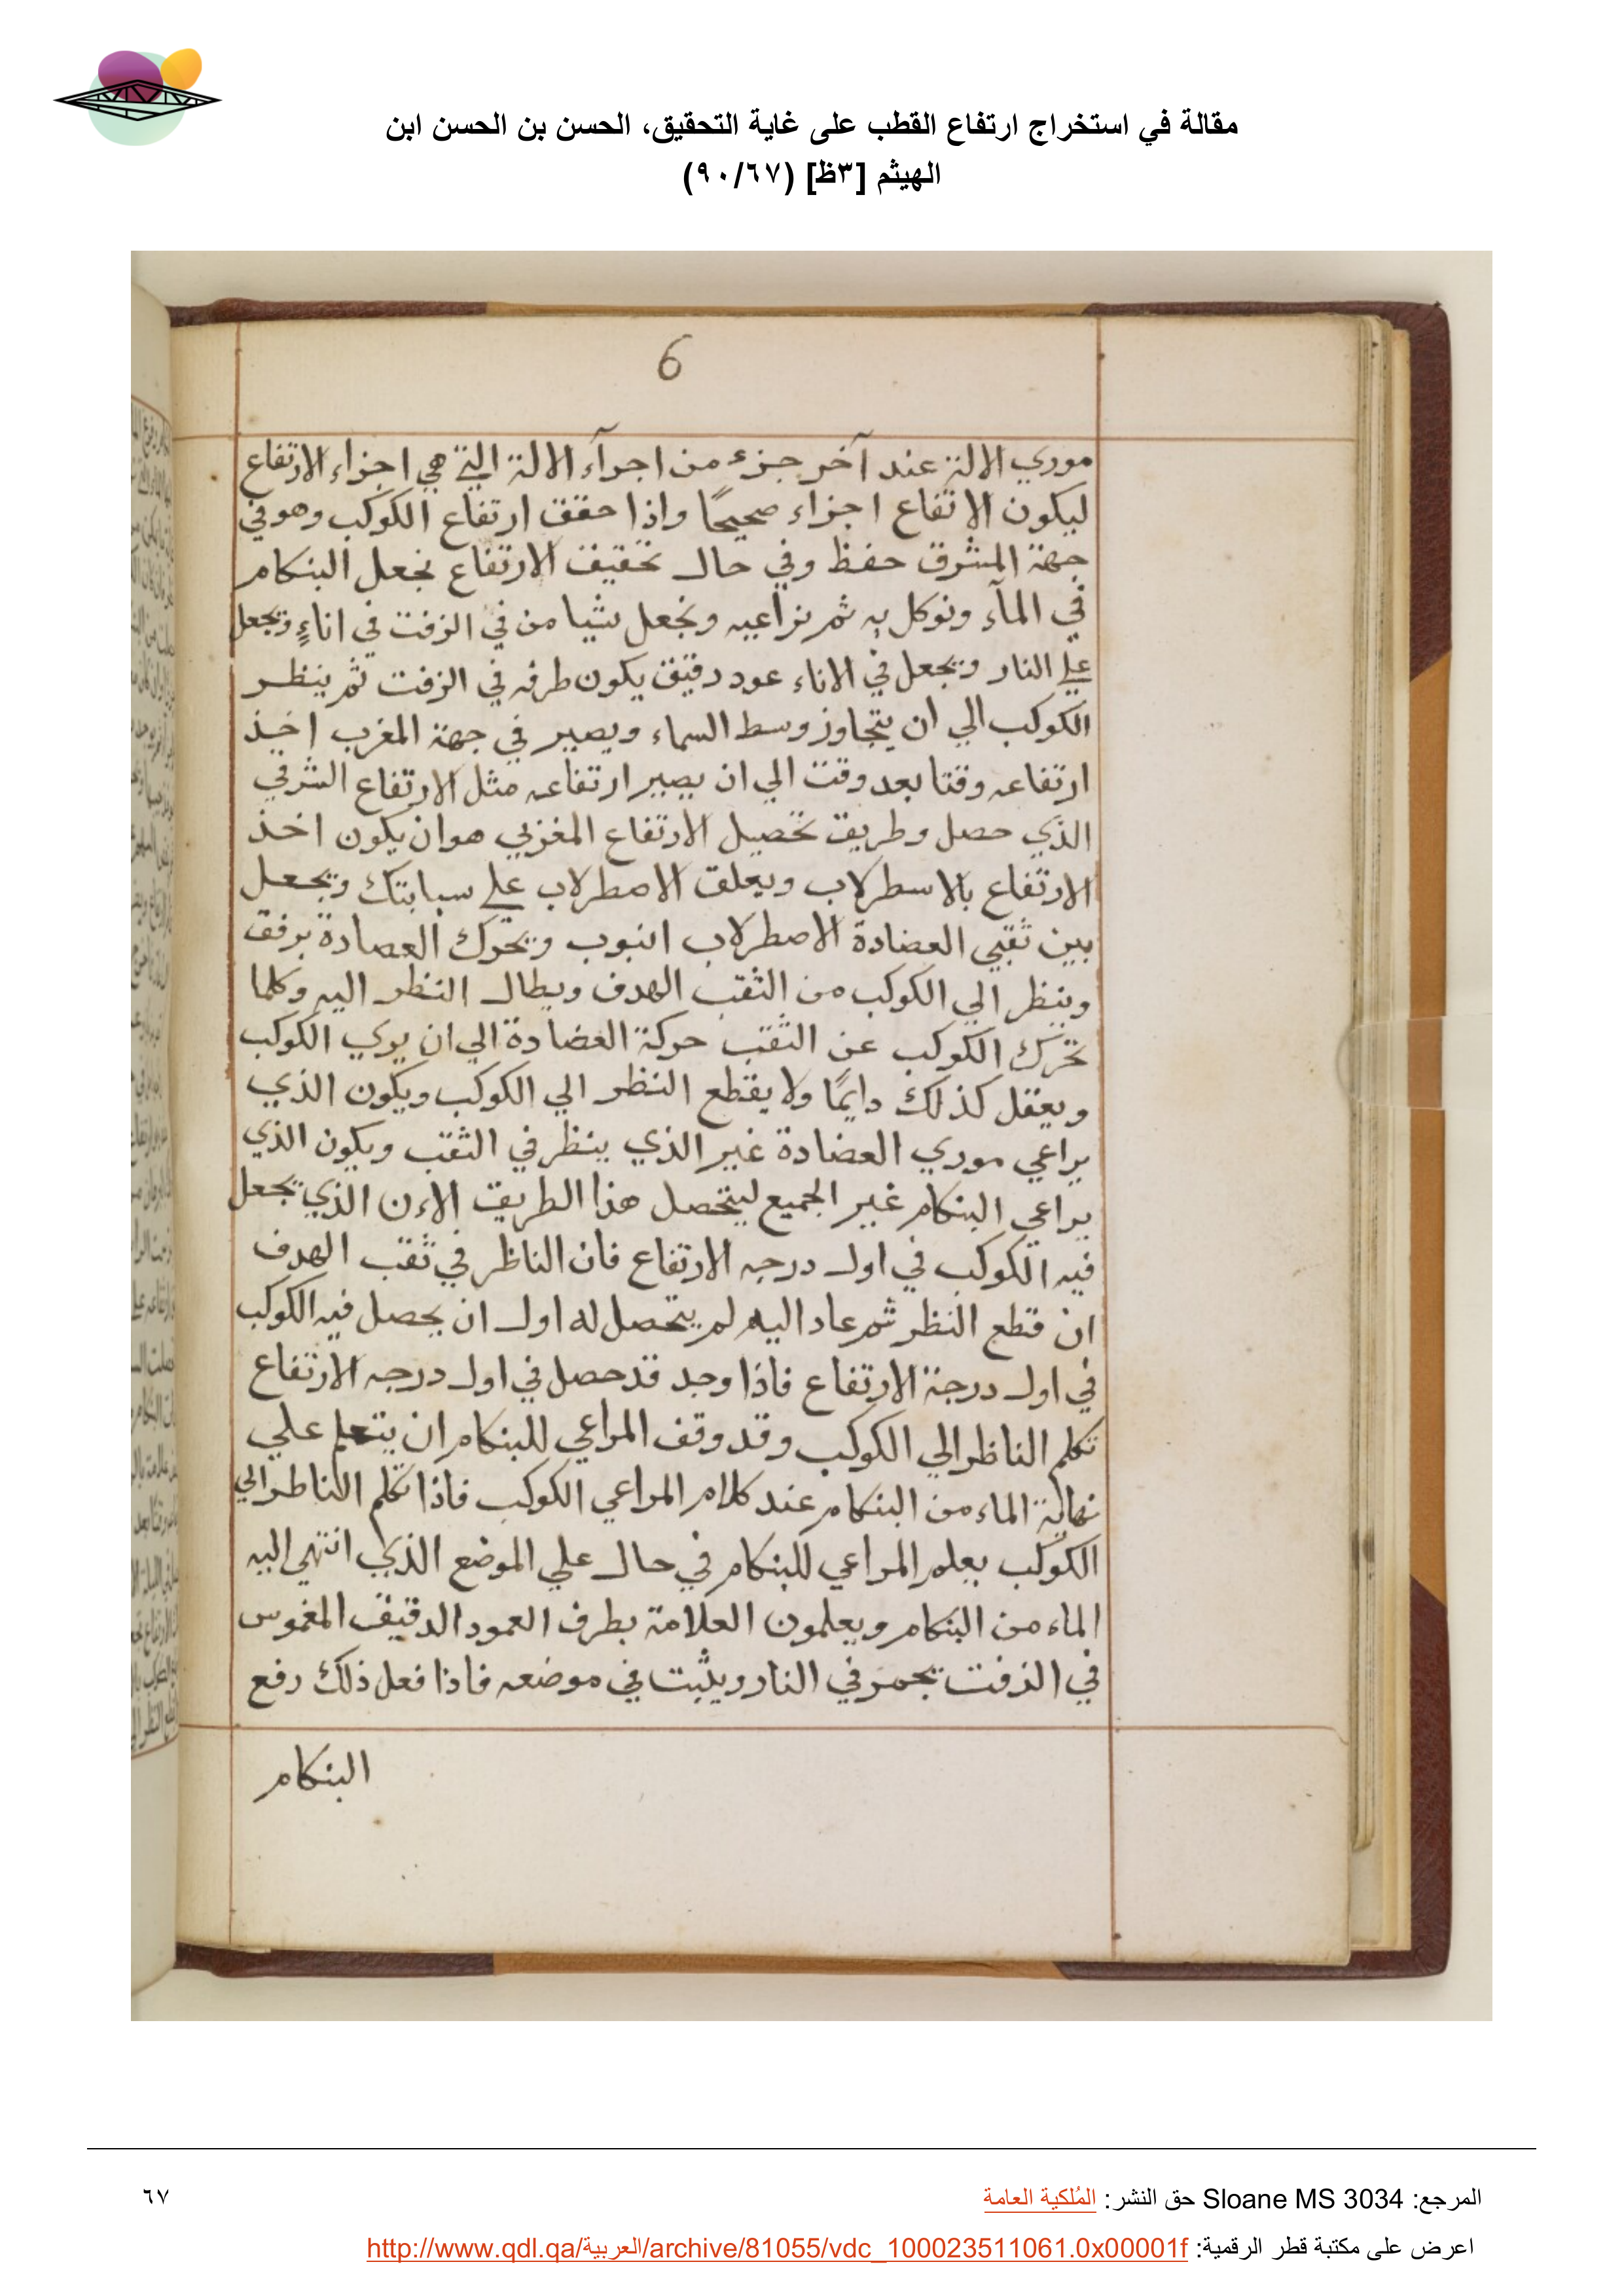 مقالة في استخراج ارتفاع القطب على غاية التحقيق، الحسن بن الحسن ابن
الهيثم [٣ظ] (٩٠/٦٧)
6
موري الالة عند آخر جزء من اجرآء الالة التي هي اجزاء الارتفاع
ليكون الاتفاع اجزاء صحيحًا واذا حقق ارتفاع الكوكب وهو في
جهة المشرق حفظ وفي حال تحقيق الارتفاع نجعل البنكام
في المآء ونوكل به ثم نراعيه ونجعل شيا من في الزفت في اناءٍ ويجعل
علي النار ويجعل في الاناء عود دقيق يكون طرفه في الزفت ثم ينظر
الكوكب الي ان يتجاوز وسط السماء ويصير في جهة المغرب اخيذ
ارتفاعه وقتا بعد وقت الي ان يصير ارتفاعه مثل الارتفاع الشرقي
الذي حصل وطريق تحصيل الارتفاع المغربي هو ان يكون اخذ
الارتفاع بالاسطرلاب ويعلق الاصطرلاب علي سبابتك ويجعل
بين ثقبي العضادة الاصطرلاب انبوب ويحرك العصادة برفق
وينظر الي الكوكب من الثقب الهدف ويطال النظر اليه وكلما
تحرك الكوكب عن الثقب حركة العضادة الي ان يري الكوكب
ويعقل كذلك دايمًا ولا يقطع النظر الي الكوكب ويكون الذي
يراعي موري العضادة غير الذي ينظر في الثقب ويكون الذي
يراعي البنكام غير الجميع ليتحصل هذا الطريق الاءن الذي يجعل
فيه الكوكب في اول درجه الارتفاع فان الناظر في ثقب الهدف
ان قطع النظر ثم عاد اليه لم يتحصل له اول ان يحصل فيه الكوكب
في اول درجة الارتفاع فاذا وجد قد حصل في اول درجه الارتفاع
تكلم الناظر الي الكوكب وقد وقف المراعي للبنكام ان يتعلم علي
نهاية الماء من البنكام عند كلام المراعي الكوكب فاذا تكلم الناطر الي
الكوكب يعلم المراعي للبنكام في حال علي الموضع الذي انتهي اليه
الماء من البنكام ويعلمون العلامة بطرف العمود الدقيق المغموس
في الزفت يحمر في النار ويثبت في موضعه فاذا فعل ذلك رفع
البنكام
المرجع: Sloane MS 3034 حق النشر: المُلكية العامة
٦٧
اعرض على مكتبة قطر الرقمية: http://www.qdl.qa/العربية/archive/81055/vdc_100023511061.0x00001f